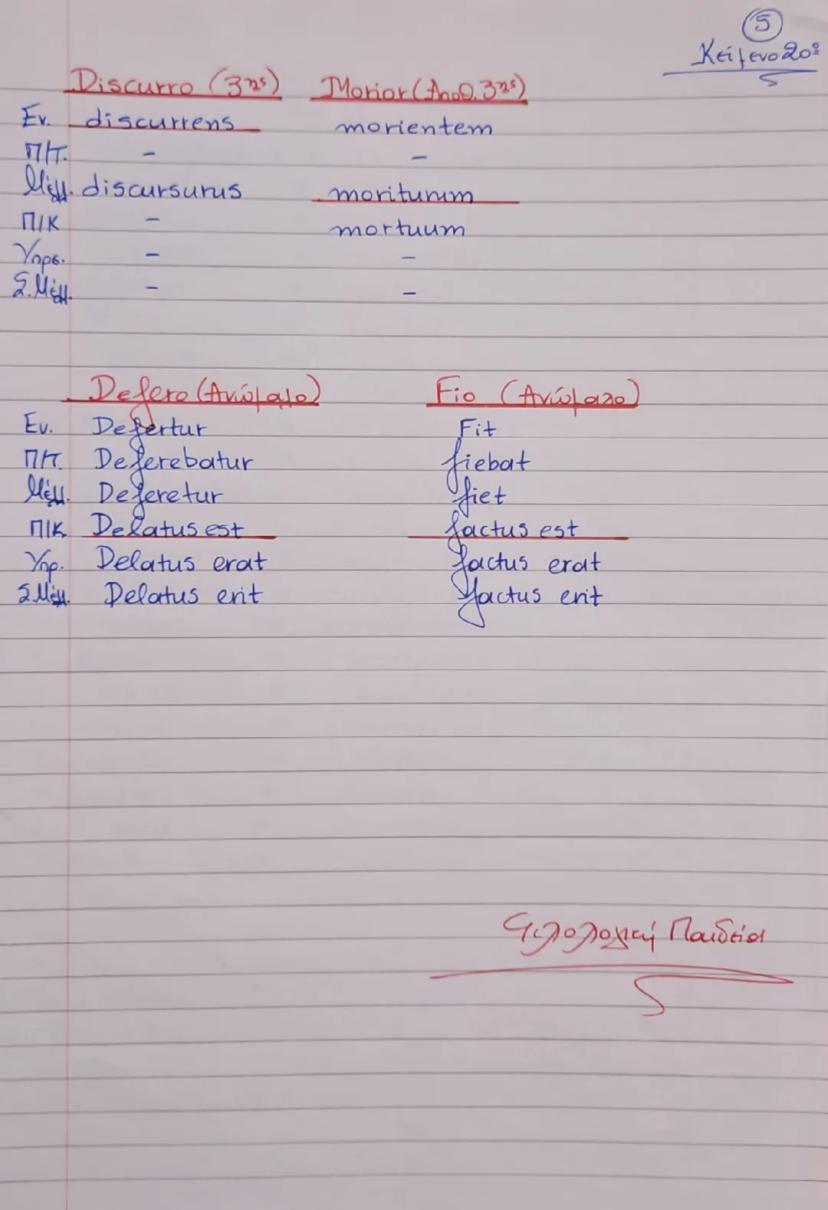 5
Κείμενο 20ο
Discurro (3ης) Morior (Αποθ. 3ης)
Εν. discurrens morientem
Π/Τ. - -
Μέλλ. discursurus moriturum
Π/Κ - mortuum
Υπερ. - -
Σ.Μέλλ. - -
Defero (Ανώμαλο) Fio (Ανώμαλο)
Εν. Defertur Fit
Π/Τ. Deferebatur fiebat
Μέλλ. Deferetur fiet
Π/Κ Delatus est factus est
Υπρ. Delatus erat factus erat
Σ.Μέλλ. Delatus erit factus erit
Φιλολογική Παιδεία